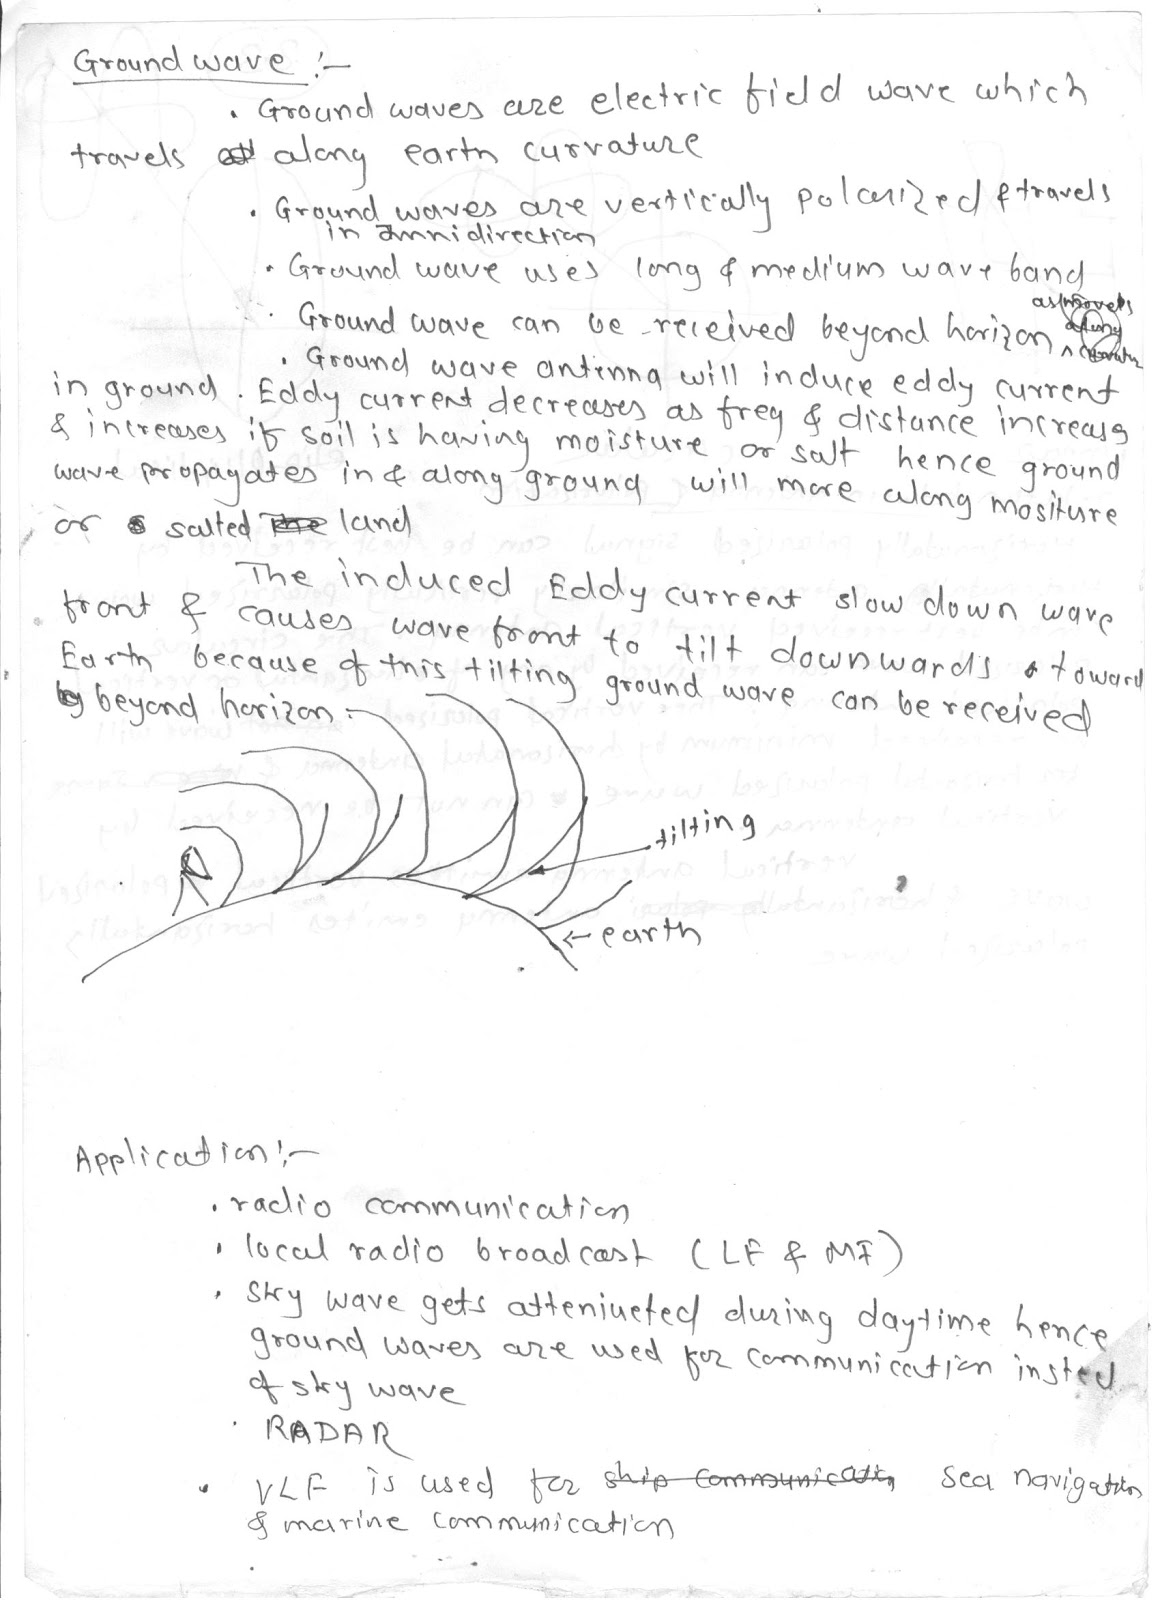 Ground wave :-
. Ground waves are electric field wave which
travels along earth curvature
. Ground waves are vertically polarized & travels
in omnidirection
. Ground wave uses long & medium wave band
. Ground wave can be received beyond horizon as
along
. Ground wave antenna will induce eddy current
in ground. Eddy current decreases as freq & distance increases
& increases if soil is having moisture or salt hence ground
wave propagates in & along ground will more along mositure
or salted land
The induced Eddy current slow down wave
front & causes wave front to tilt downwards toward
Earth because of this tilting ground wave can be received
beyond horizon.
tilting
← earth
Application:-
. radio communication
. local radio broadcast (LF & MF)
. Sky wave gets atteniueted during daytime hence
ground waves are used for communication insted
of sky wave
. RADAR
. VLF is used for ship communication sea navigation
& marine communication